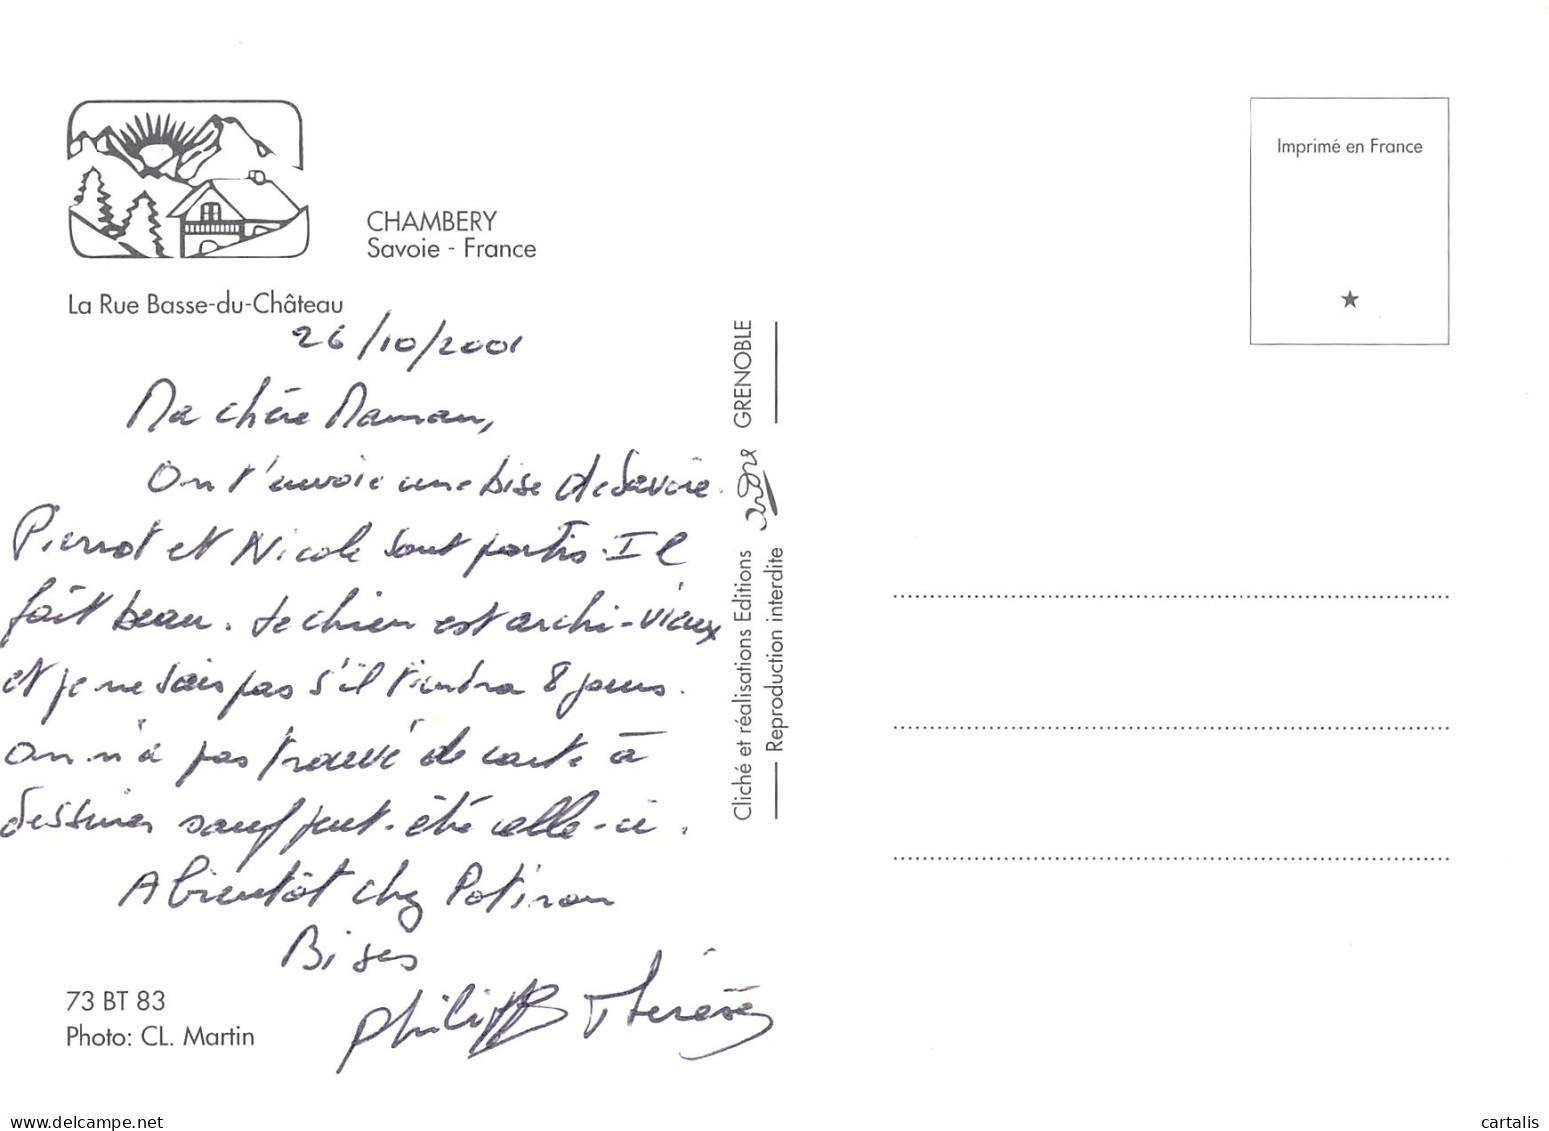 CHAMBERY
Savoie - France
La Rue Basse-du-Château
26/10/2001
Ma chère Maman,
On t'envoie une bise de Savoie.
Pierrot et Nicole sont partis. Il
fait beau. Le chien est archi-vieux
et je ne sais pas s'il tiendra 8 jours.
On n'a pas trouvé de carte à
dessiner sauf peut-être celle-ci.
A bientôt chez Potiron
Bises
Philippe Thérèse
73 BT 83
Photo: CL. Martin
Cliché et réalisations Editions andre GRENOBLE
Reproduction interdite
Imprimé en France
www.delcampe.net
cartalis